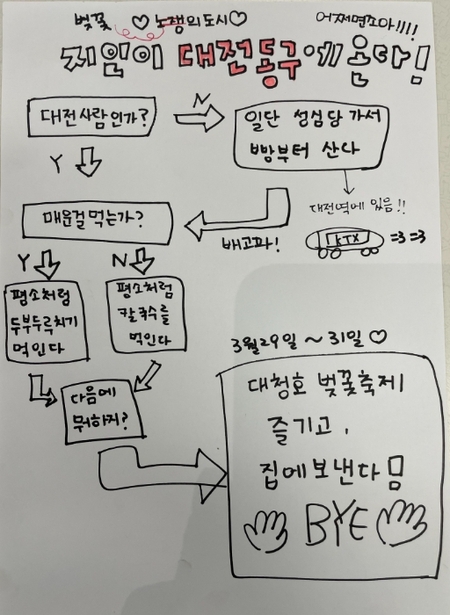 벚꽃
♡ 노잼의도시 ♡
어쩌면조아!!!!
지인이 대전동구에 온다!
대전사람인가?
N
일단 성심당 가서
빵부터 산다
Y
대전역에 있음!!
KTX =3 =3
매운걸 먹는가?
배고파!
Y
N
평소처럼
두부두루치기
먹인다
평소처럼
칼국수를
먹인다
다음에
뭐하지?
3월29일 ~ 31일 ♡
대청호 벚꽃축제
즐기고,
집에보낸다
BYE